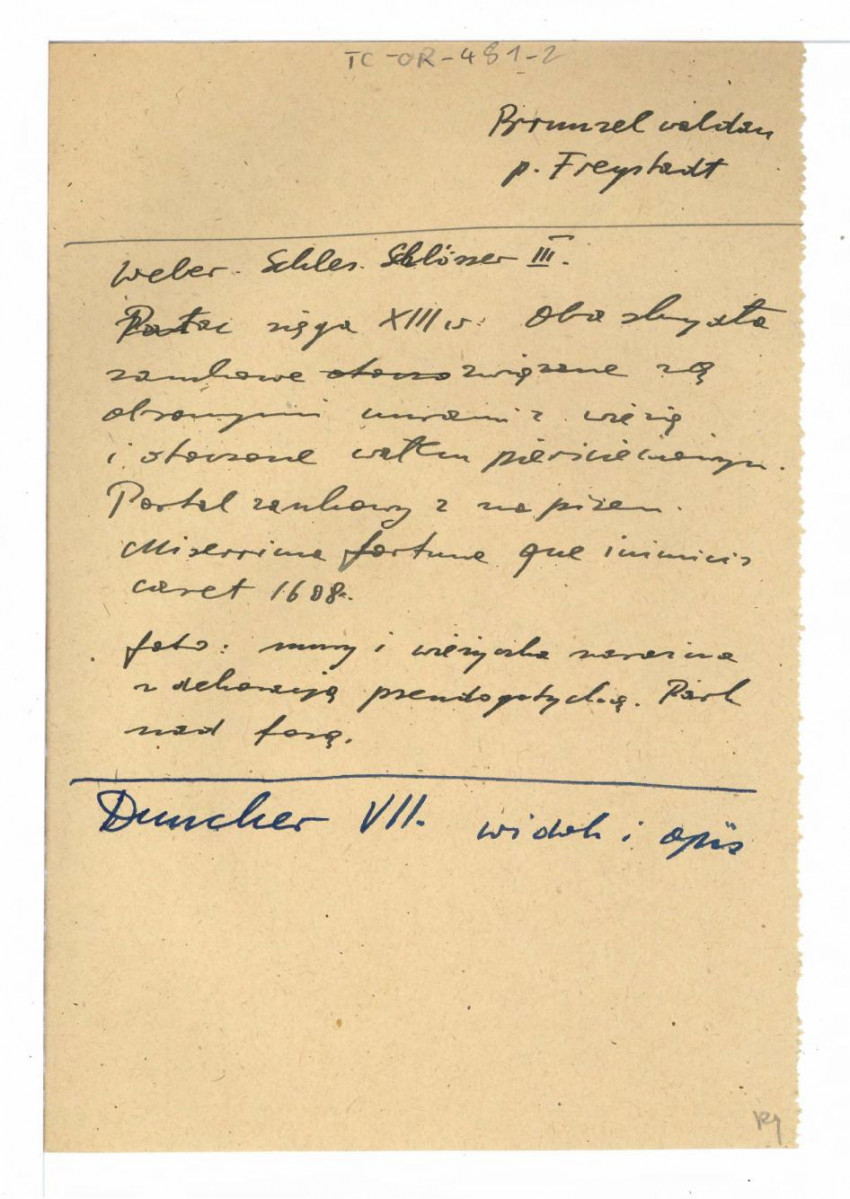 TC-OR-481-2
Brunzelwaldau
p. Freystadt
Weber. Schles. Schlösser III.
Pałac sięga XIII w. Oba skrzydła
zamkowe otoczo związane są
obronnymi murami z wieżą
i otoczone wałem pierścieniowym.
Portal zamkowy z napisem.
Miserrima fortuna que inimicis
caret 1608.
foto: mury i wieżyczka narożna
z dekoracją pseudogotycką. Park
nad fosą.
Duncker VII. widok i opis